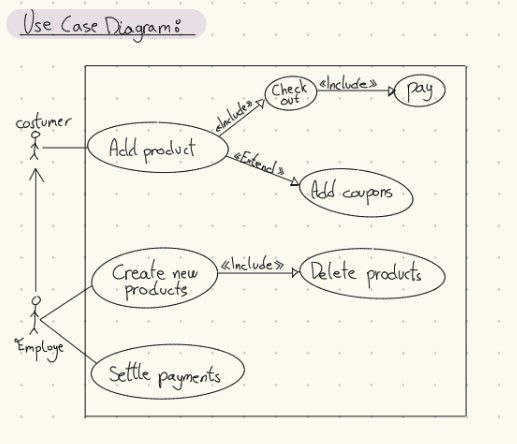 Use Case Diagram:
costumer
Add product
«Include»
Check
out
«Include»
pay
«Extend»
Add coupons
Employe
Create new
products
«Include»
Delete products
Settle payments